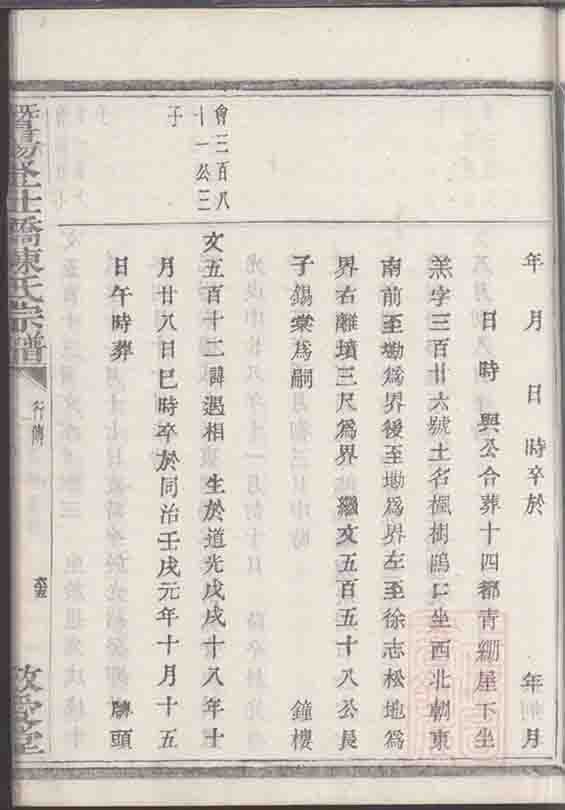 年　月　日　時卒於　年　月
日　時　與公合葬十四都青綳屋下坐
羔字三百廿六號土名楓樹鴎口坐西北朝東
南前至塝爲界後至塝爲界左至徐志松地爲
界右離墳三尺爲界　繼文五百五十八公長
子錫棠爲嗣　鐘樓
會三百八
十一公三
子
文五百十二諱遇相　生於道光戊戌十八年十
月廿八日巳時卒於同治壬戌元年十月十五
日午時葬　牌頭
暨陽　　橋陳氏宗譜
行傳
敬愛堂